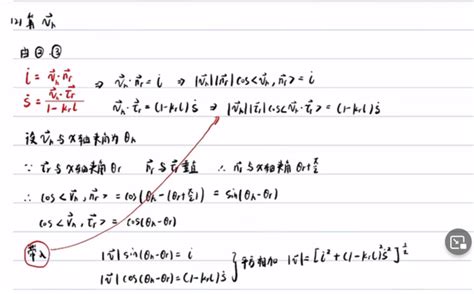 (2) 有 $\vec{v}_h$
由②.③
$\dot{l} = \vec{v}_h \cdot \vec{n}_r$ ⇒ $\vec{v}_h \cdot \vec{n}_r = \dot{l}$ ⇒ $|\vec{v}_h||\vec{n}_r|\cos<\vec{v}_h, \vec{n}_r> = \dot{l}$
$\dot{s} = \frac{\vec{v}_h \cdot \vec{\tau}_r}{1 - k_r l}$ $\vec{v}_h \cdot \vec{\tau}_r = (1 - k_r l)\dot{s}$ ⇒ $|\vec{v}_h||\vec{\tau}_r|\cos<\vec{v}_h \cdot \vec{\tau}_r> = (1 - k_r l)\dot{s}$
设 $\vec{v}_h$ 与 x轴夹角为 θh
∵ $\vec{\tau}_r$ 与x轴夹角 θr $\vec{n}_r$ 与 $\vec{\tau}_r$ 垂直 ∴ $\vec{n}_r$ 与x轴夹角 $θr + \frac{π}{2}$
∴ $\cos<\vec{v}_h, \vec{n}_r> = \cos(θh - (θr + \frac{π}{2})) = \sin(θh - θr)$
$\cos<\vec{v}_h, \vec{\tau}_r> = \cos(θh - θr)$
带入 $|\vec{v}|\sin(θh - θr) = \dot{l}$
$|\vec{v}|\cos(θh - θr) = (1 - k_r l)\dot{s}$ } 平方相加 $|\vec{v}| = [\dot{l}^2 + (1 - k_r l)^2\dot{s}^2]^{\frac{1}{2}}$